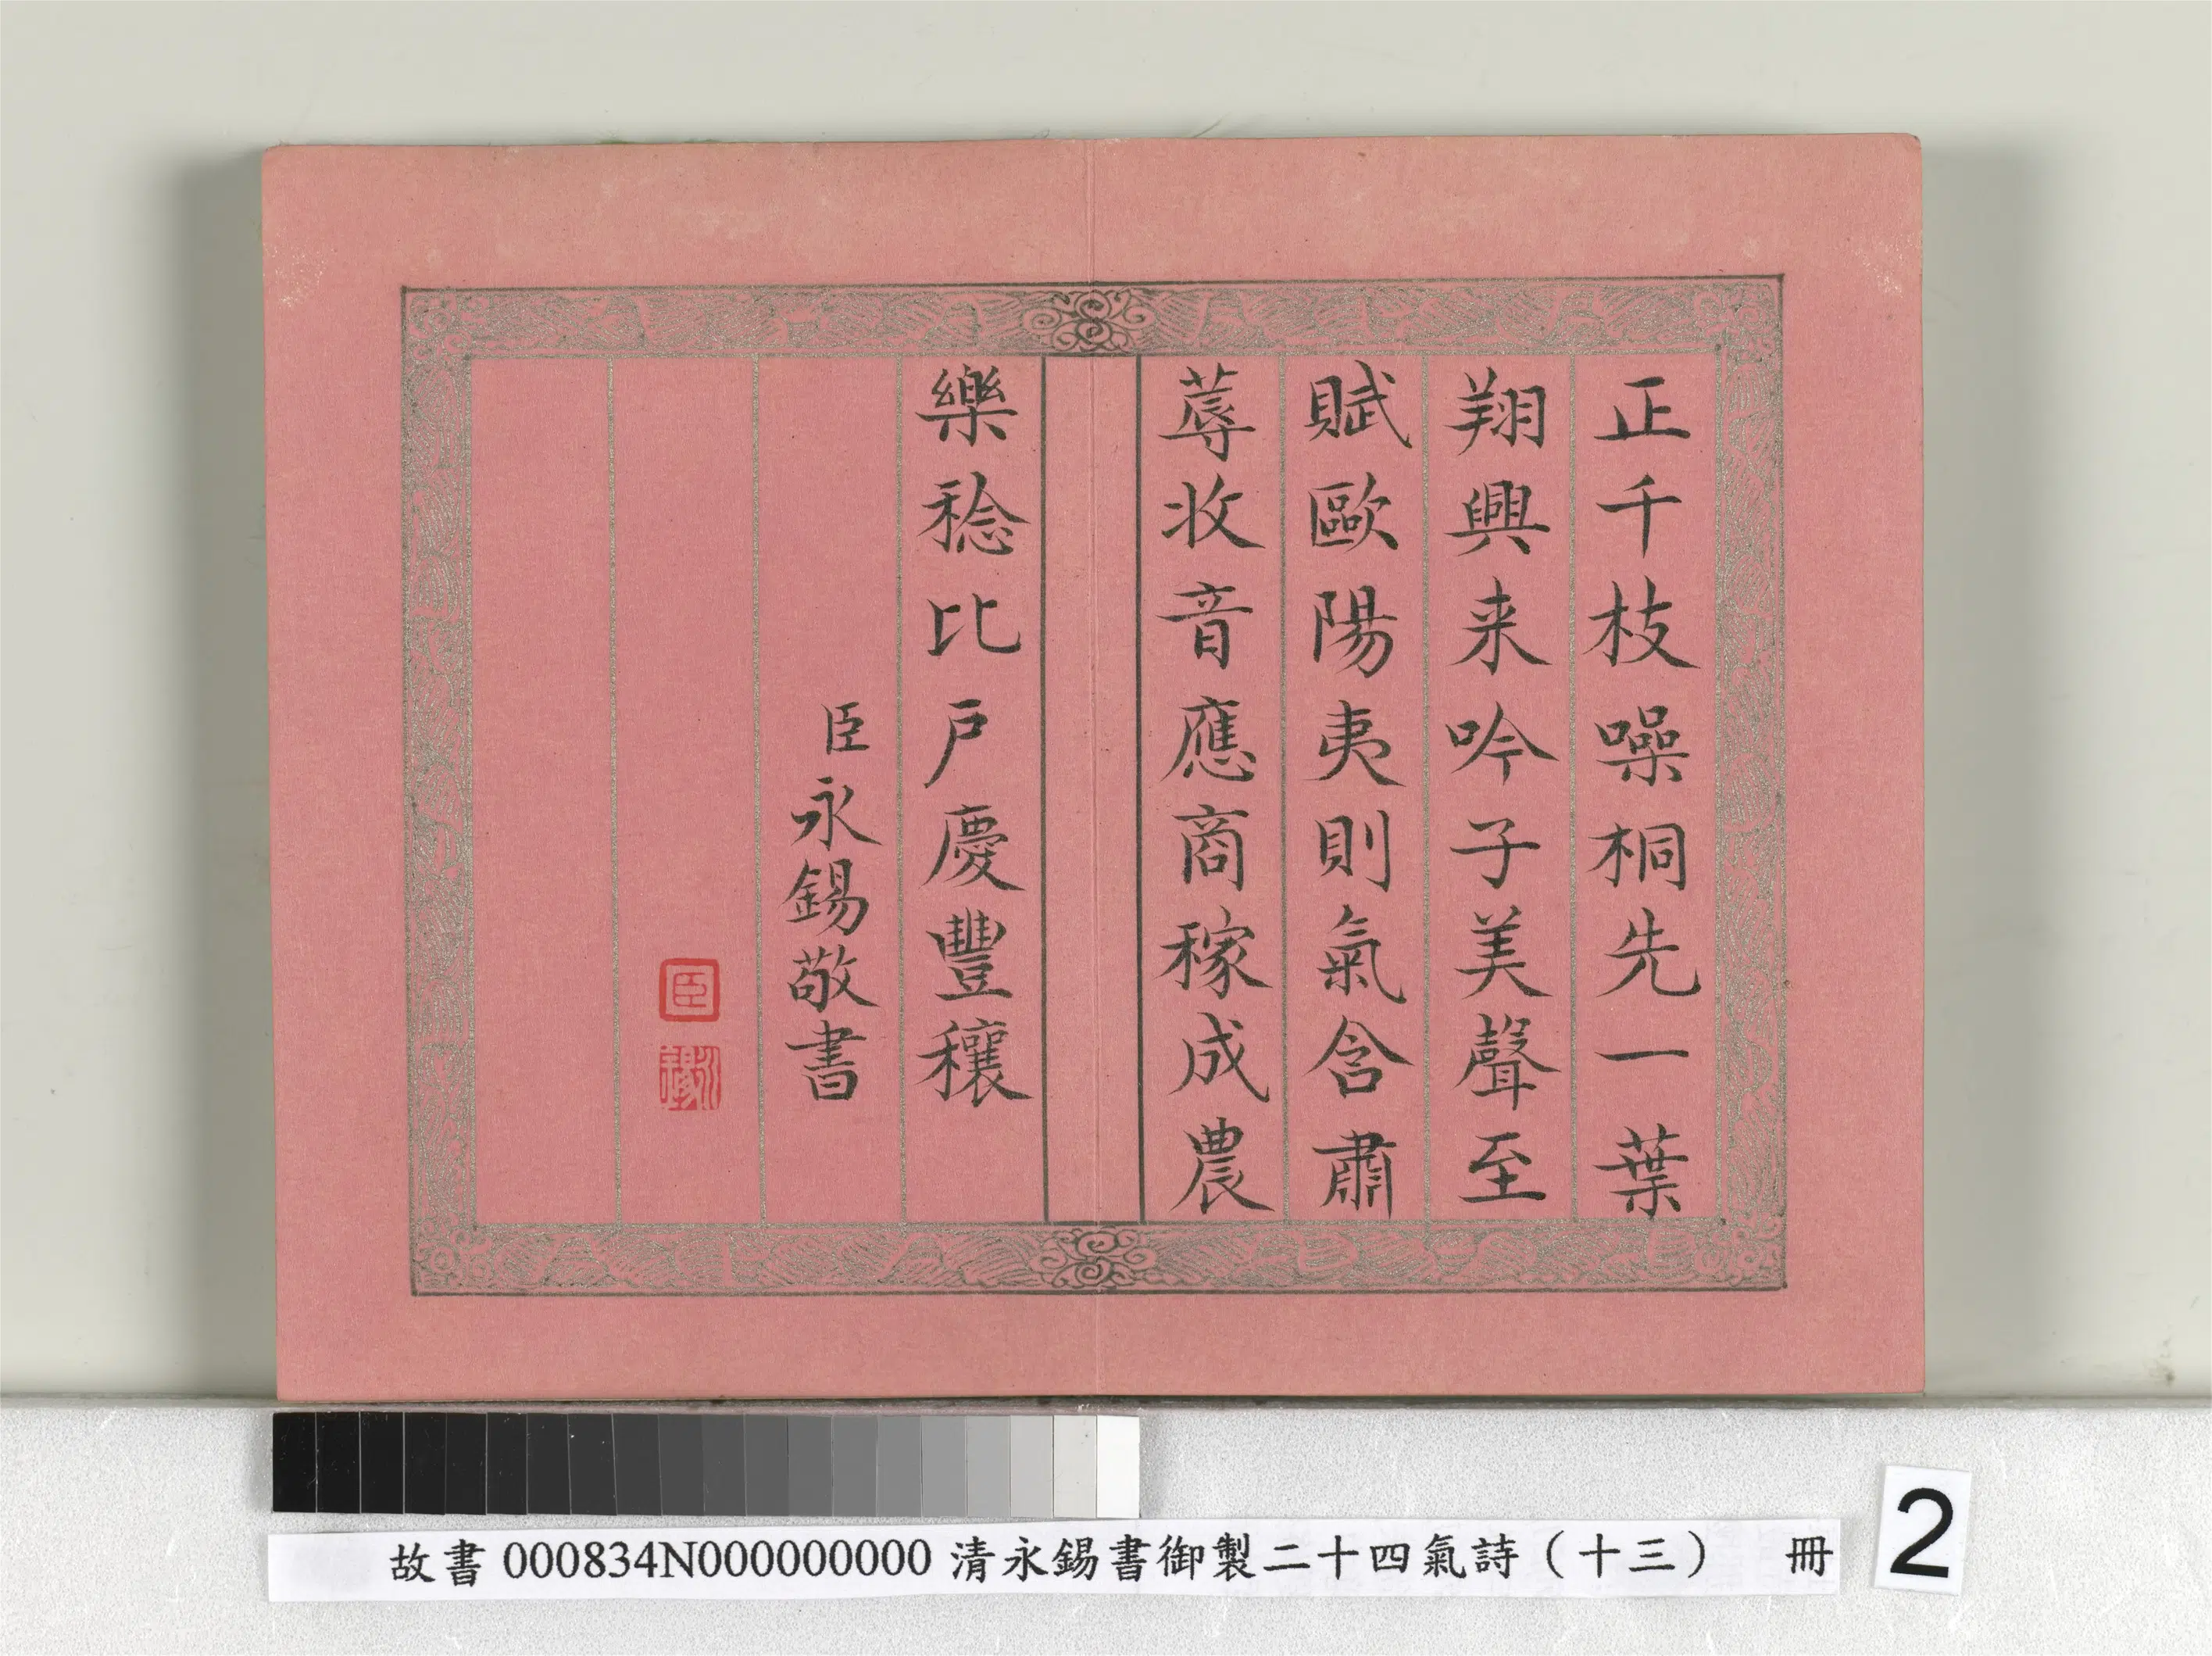 正千枝噪桐先一葉
翔興来吟子美聲至
賦歐陽夷則氣含肅
蓐收音應商稼成農
樂稔比戶慶豐穰
臣永錫敬書
臣
故書 000834N000000000 清永錫書御製二十四氣詩（十三） 冊
2